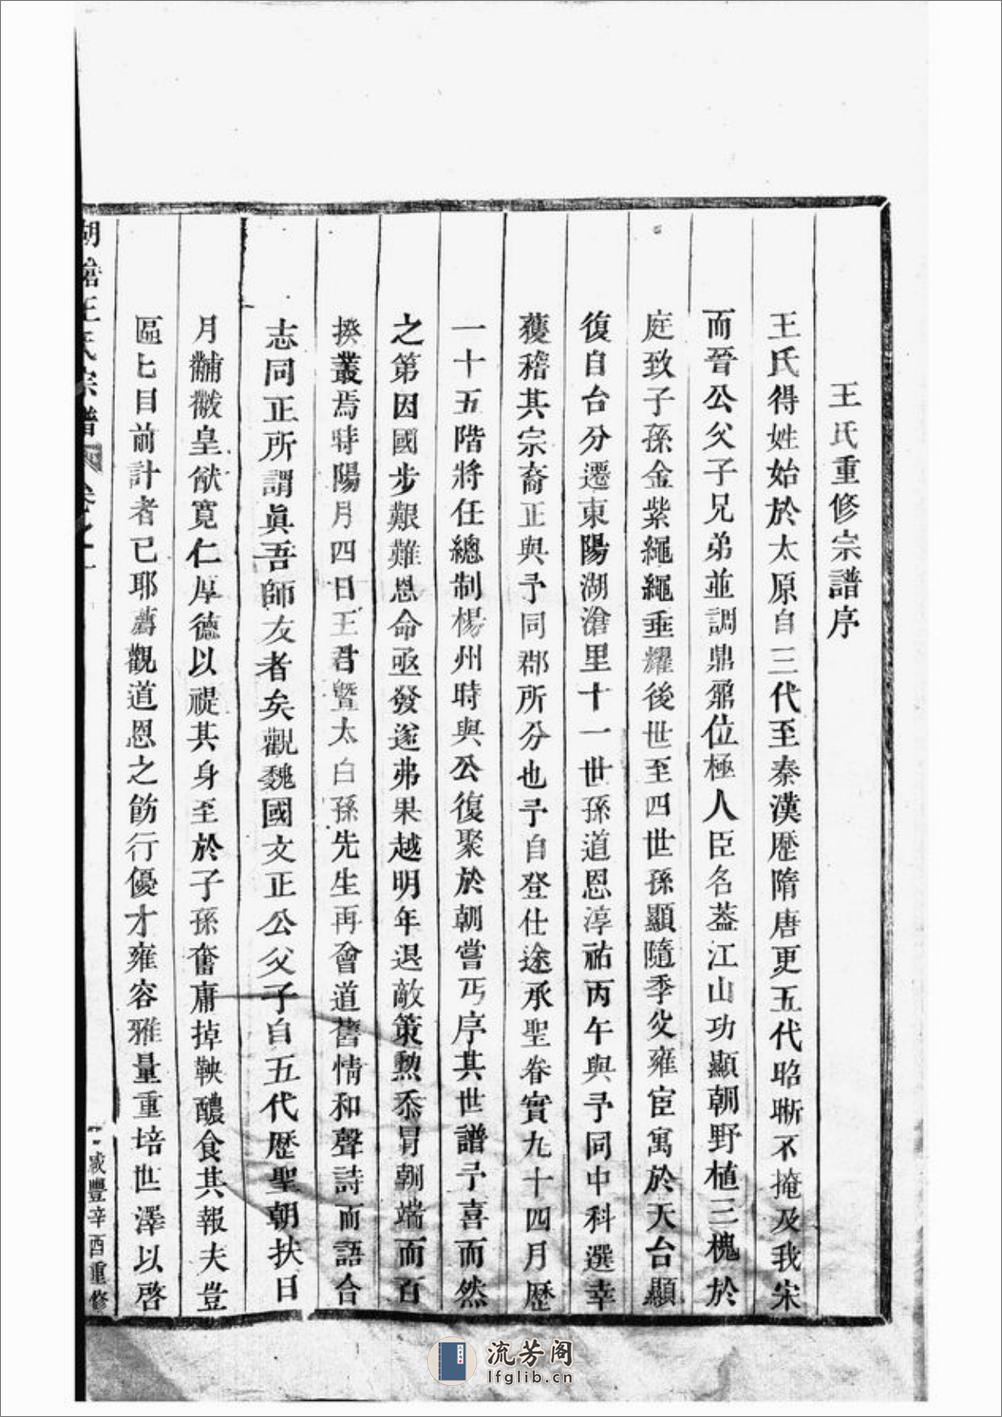 王氏重修宗譜序
王氏得姓始於太原自三代至秦漢歷隋唐更五代昭晰不掩及我宋
而晉公父子兄弟並調鼎鼐位極人臣名葢江山功顯朝野植三槐於
庭致子孫金紫繩繩垂耀後世至四世孫顯隨季父雍宦寓於天台顯
復自台分遷東陽湖滄里十一世孫道恩淳祐丙午與予同中科選幸
獲稽其宗裔正與予同郡所分也予自登仕途承聖眷實九十四月歷
一十五階將任總制楊州時與公復聚於朝嘗丐序其世譜予喜而然
之第因國步艱難恩命亟發遂弗果越明年退敵策勲忝冐朝端而百
揆叢焉時陽月四日王君曁太白孫先生再會道舊情和聲詩而語合
志同正所謂眞吾師友者矣觀魏國文正公父子自五代歷聖朝扶日
月黼黻皇猷寬仁厚德以禔其身至於子孫奮庸掉鞅醲食其報夫豈
區匕目前計者已耶薦觀道恩之飭行優才雍容雅量重培世澤以啓
湖滄王氏宗譜 卷之一
咸豐辛酉重修
流芳阁
lfglib.cn